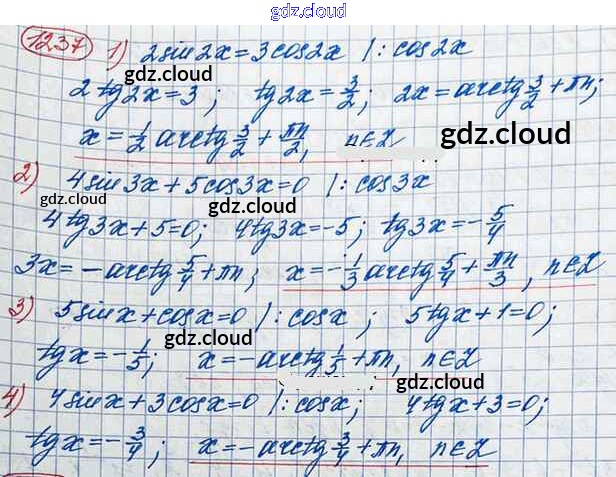 gdz.cloud
1237 1) 2sin2x=3cos2x |:cos2x
gdz.cloud
2tg2x=3; tg2x=3/2; 2x=arctg3/2+πn;
x=1/2 arctg3/2+πn/2, n∈Z gdz.cloud
2) 4sin3x+5cos3x=0 |:cos3x
gdz.cloud gdz.cloud
4tg3x+5=0; 4tg3x=-5; tg3x=-5/4
3x=-arctg5/4+πn; x=-1/3 arctg5/4+πn/3, n∈Z
gdz.cloud
3) 5sinx+cosx=0 |:cosx; 5tgx+1=0;
gdz.cloud
tgx=-1/5; x=-arctg1/5+πn, n∈Z
gdz.cloud
4) 4sinx+3cosx=0 |:cosx; 4tgx+3=0;
tgx=-3/4; x=-arctg3/4+πn, n∈Z
gdz.cloud